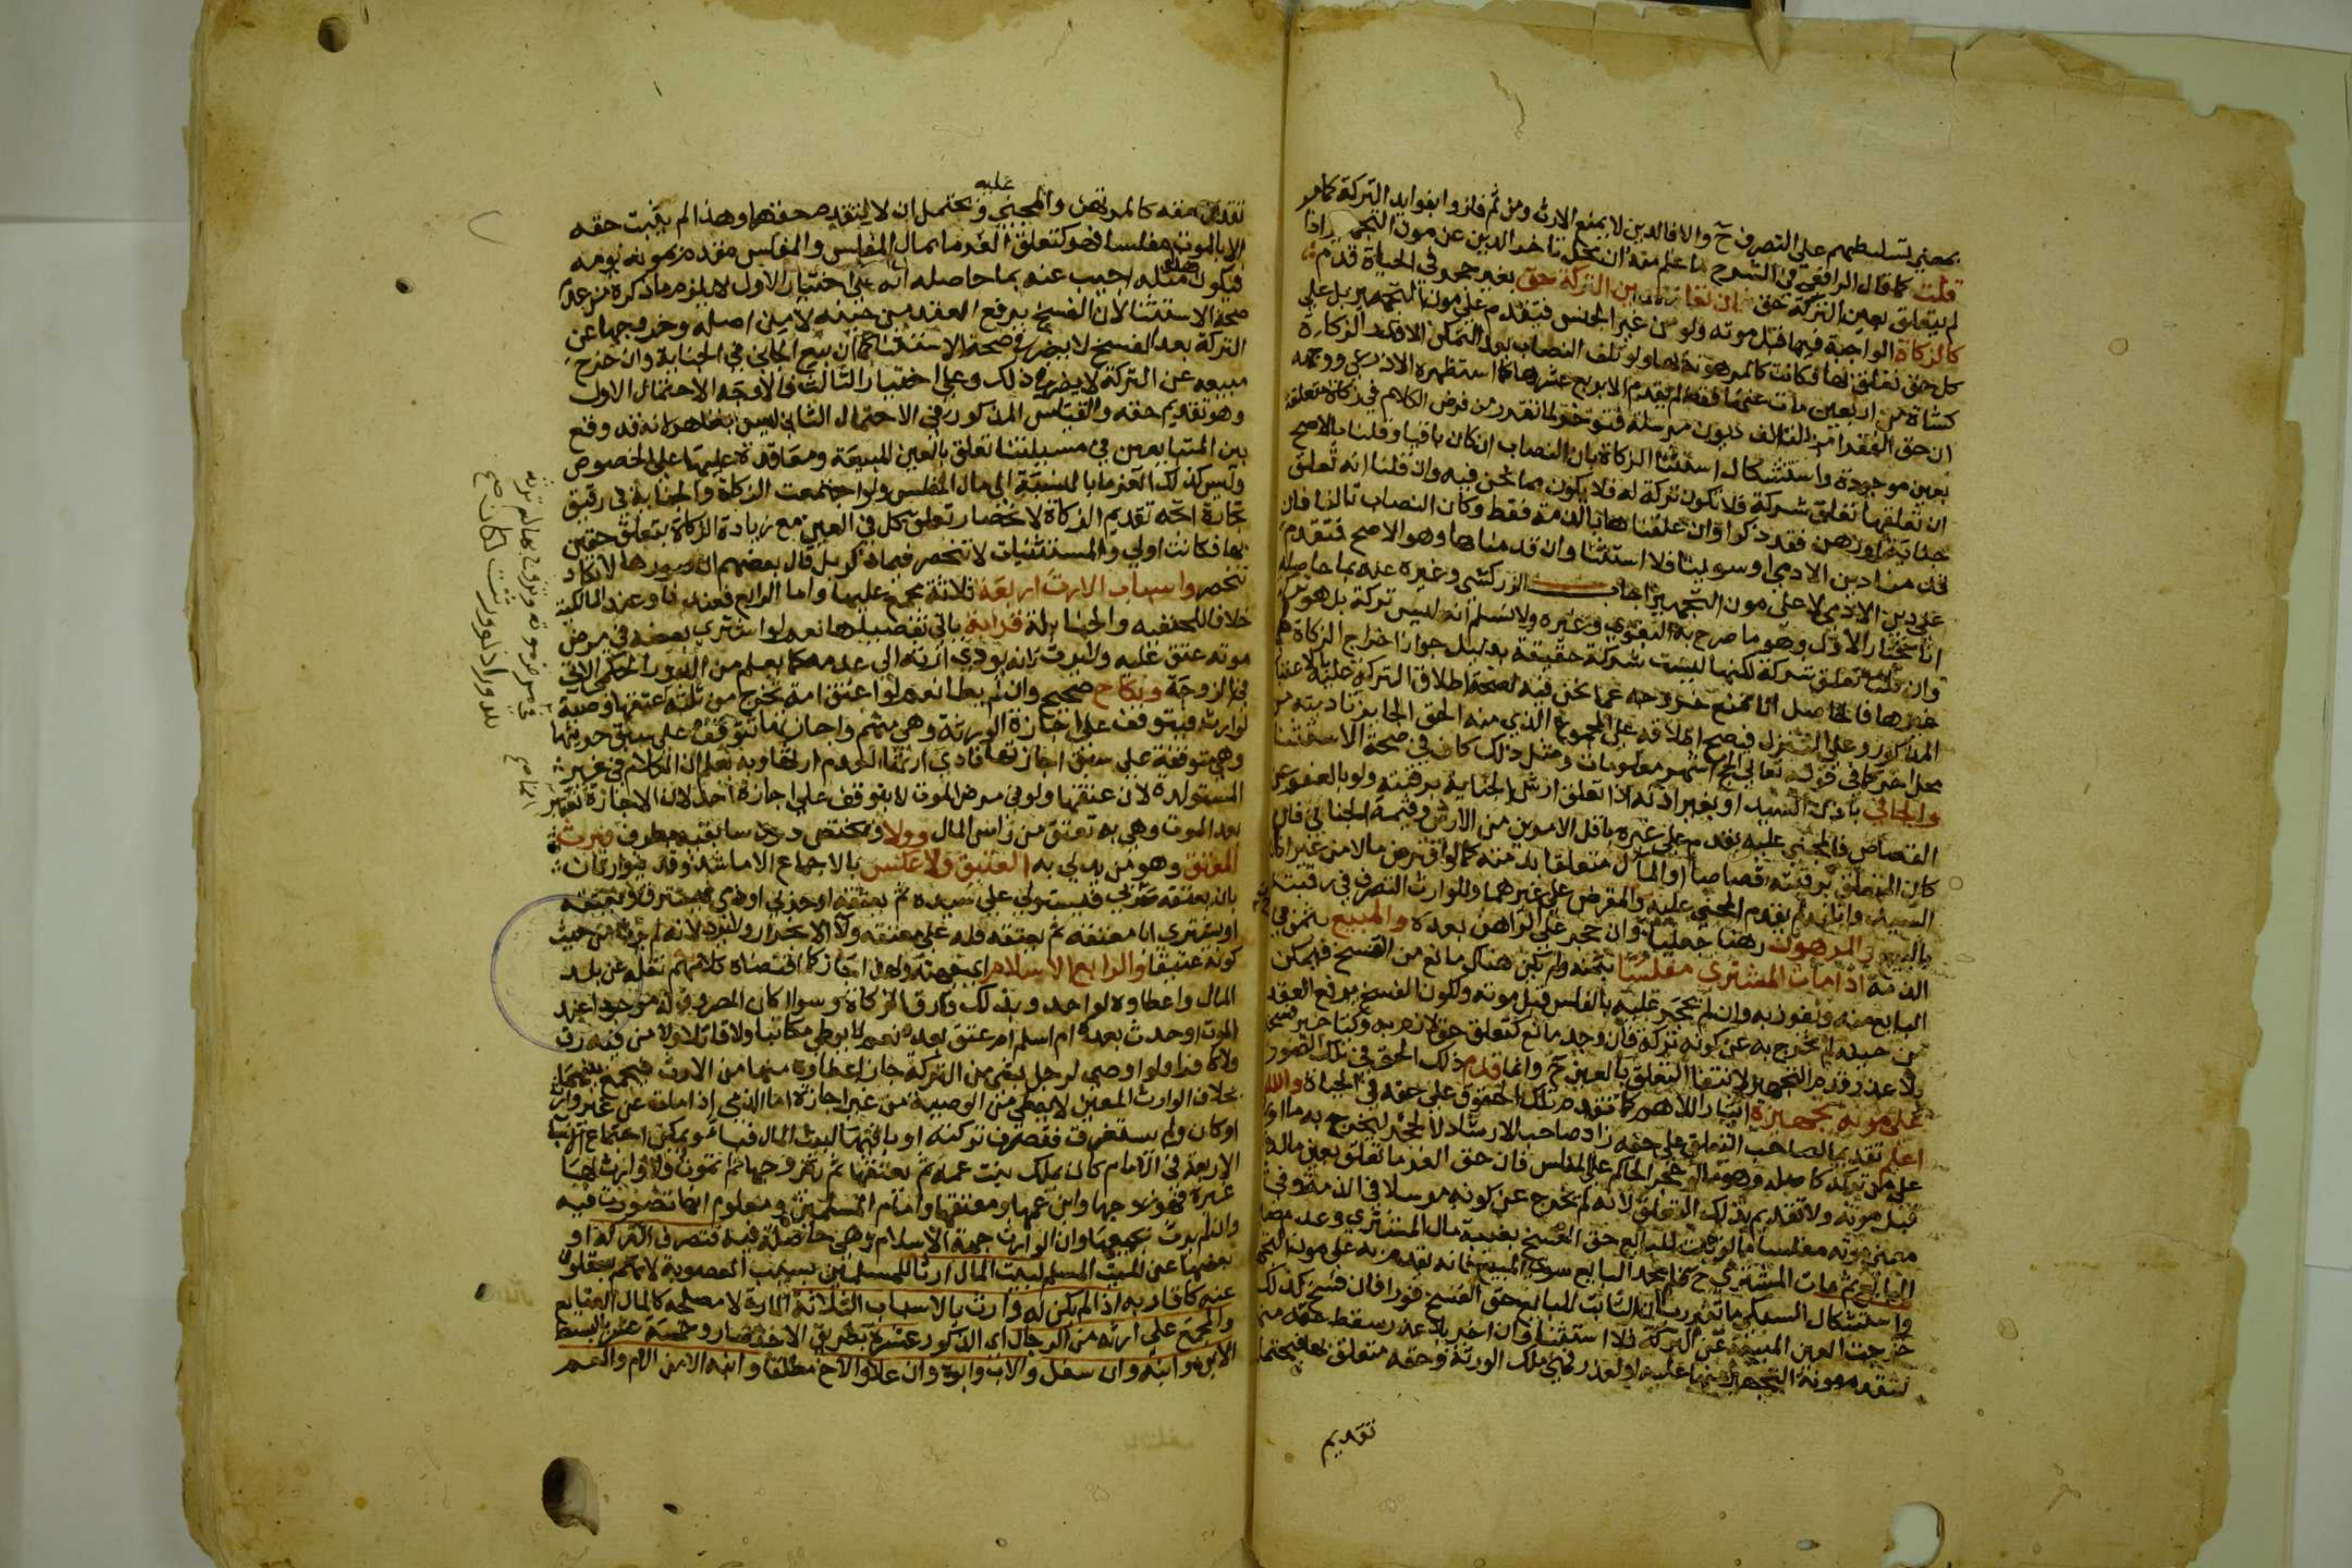 بمعنى تسلطهم على التصرف ح والا فالدين لا يمنع الارث ومن ثم فازوا بفوايد التركة كما مر
قلت كما قال الرافعي في الشرح ما علم منه ان محل تاخر الدين عن مون التجهيز اذا
لم يتعلق بعين التركة حق فان تعلق بعين التركة حق بغير حجر في الحياة قدم
كالزكاة الواجبة فيما قبل موته ولو من غير الجنس فيقدم على مون التجهيز بل على
كل حق تعلق بها فكانت كالمرهونة بها ولو تلف النصاب بعد التمكن الا قدر الزكاة
كشاة من اربعين مات عنها فقط لم يقدم الا بربع عشرها كما استظهره الاذرعي ووجهه
ان حق الفقرا من التالف ديون مرسلة
بعين موجودة واستشكال استثنا الزكاة بان النصاب ان كان باقيا وقلنا بالاصح
ان تعلقها تعلق شركة فلا تكون تركة له فلا يكون مما نحن فيه وان قلنا انه تعلق
جناية او رهن فقد ذكرا وان علقناها بالذمة فقط وكان النصاب تالفا فان
قدمنا دين الادمي او سوينا فلا استثنا وان قدمناها وهو الاصح فتقدم
على دين الادمي لا على مون التجهيز اجاب الزركشي وغيره عنه بما حاصله
انا نختار الاول وهو ما صرح به البغوي وغيره ولا نسلم انه ليس تركة بل هو تركة
وان تعلق تعلق شركة لكنها ليست شركة حقيقة بدليل جواز اخراج الزكاة من
غيرها فالحاصل انا نمنع خروجه عما نحن فيه لصحة اطلاق التركة عليه بالاعتبار
المذكور وعلى التنزل فيصح اطلاقه على المجموع الذي منه الحق الجايز تاديته من
محل اخر كما في قوله تعالى الحج اشهر معلومات ومثل ذلك كاف في صحة الاستثنا
والجاني باذن السيد او بغير اذنه اذا تعلق ارش الجناية برقبته ولو بالعفو عن
القصاص فالمجني عليه يقدم على غيره باقل الامرين من الارش وقيمة الجاني فان
كان المتعلق برقبته قصاصا او المال متعلقا بذمته كما لو اقترض مالا من غير اذن
السيد واتلفه لم يقدم المجني عليه والمقرض على غيرهما وللوارث التصرف في رقبته
بالبيع والمرهون رهنا جعليا وان حجر على الراهن بعده والمبيع بثمن في
الذمة اذا مات المشتري مفلسا بثمنه ولم يكن هناك مانع من الفسخ فيمكن
البايع منه ويفوز به وان لم يحجر عليه بالفلس قبل موته ولكون الفسخ يرفع العقد
من حينه لم يخرج به عن كونه تركة فان وجد مانع كتعلق حق لازم به
بلا عذر قدم التجهيز لانتفا التعلق بالعين ح وانما قدم ذلك الحق في تلك الصور
على مونة تجهيزه ايثارا للاهم كما تقدم تلك الحقوق على حقه في الحياة والله
اعلم تقديما لصاحب التعلق على حقه زاد صاحب الارشاد لا لحجر ليخرج به ما لو
على مفلس
قبل موته ولا تقديم بذلك التعلق لانه لم يخرج عن كونه مرسلا في الذمة
معنى موته مفلسا ما لو ثبت للبايع حق الفسخ بغيبة مال المشتري وعدم صبر
البايع ثم مات المشتري ح فلم يجد البايع سوى المبيع فانه يقدم به على مون التجهيز
واستشكال السبكي ما تقرر بان الثابت للبايع حق الفسخ فورا فان فسخ كذلك
خرجت العين المبيعة عن التركة فلا استثنا وان اخر بلا عذر سقط حقه منها
لتقدم مونة التجهيز منها عليه او لعذر فهي ملك الورثة وحقه متعلق بها فيحتمل
تقديم
عليه
تقديم حقه كالمرتهن والمجني ويحتمل ان لا يتقدم حقه وهذا لم يثبت حقه
الا بالموت مفلسا فهو كتعلق الغرما بمال المفلس والمفلس مقدم بمونة يومه
فيكون هذا مثله اجيب عنه بما حاصله انه على اختيار الاول لا يلزم ما ذكره من عدم
صحة الاستثنا لان الفسخ يرفع العقد من حينه لا من اصله وخروجها عن
التركة بعد الفسخ لا يضر في صحة الاستثنا كما ان بيع الجاني في الجناية وان خرج
مبيعه عن التركة لا يضر في ذلك وعلى اختيار الثالث فالاوجه الاحتمال الاول
وهو تقديم حقه والقياس المذكور في الاحتمال الثاني ليس بظاهر لانه قد وقع
بين المتبايعين في مسيلتنا تعلق بالعين المبيعة ومعاقدة عليها على الخصوص
وليس كذلك الغرما بالنسبة الى مال المفلس ولو اجتمعت الزكاة والجناية في رقيق
تجارة اتجه تقديم الزكاة لانحصار تعلق كل في العين مع زيادة الزكاة بتعلق حقين
بها فكانت اولى والمستثنيات لا تنحصر فيما ذكر بل قال بعضهم ان صورها لا تكاد
تنحصر واسباب الارث اربعة ثلاثة مجمع عليها واما الرابع فعندنا وعند المالكية
خلافا للحنفية والحنابلة قرابة ياتي تفصيلها نعم لو اشترى بعضه في مرض
موته عتق عليه ولا يرث لانه يودي ارثه الى عدمه كما يعلم من الدور الحكمي الاتي
في الزوجة ونكاح صحيح وان لم يطا نعم لو اعتق امة تخرج من ثلثه عتقها وصية
لوارث فيتوقف على اجازة الورثة وهي منهم واجازتها تتوقف على سبق حريتها
وهي متوقفة على سبق اجازتها فادى ارثها لعدم ارثها وبه تعلم ان الكلام في غير
المستولدة لان عتقها ولو في مرض الموت لا يتوقف على اجازة احد لان الاجازة تعتبر
بعد الموت وهي به تعتق من راس المال وولا ويختص دون سابقيه بطرف فيرث
المعتق وهو من يدلي به العتيق ولا عكس بالاجماع الا ما شذ وقد يتوارثان
بان يعتقه حربي فيستولي على سيده ثم يعتقه او حربي او ذمي فيسترق فيعتقه
او يشتري ابا معتقه ثم يعتقه فله على معتقه ولا الانجرار ولا يرد لانه لم يرثه من حيث
كونه عتيقا والرابع الاسلام اي جهته ولهذا جاز كما اقتضاه كلامهم نقله عن بلد
المال واعطاوه لواحد وبذلك فارق الزكاة وسوا كان المصروف له موجودا عند
الموت او حدث بعده ام اسلم ام عتق بعده نعم لا يعطي مكاتبا ولا قاتلا ولا من فيه رق
ولا كافرا ولو اوصى لرجل بشي من التركة جاز اعطاوه منها من الارث فيجمع بينهما
بخلاف الوارث المعين لا يعطى من الوصية من غير اجازة اما الذمي اذا مات عن غير وارث
او كان ولم يستغرق فتصرف تركته او باقيها لبيت المال فيا ويمكن اجتماع الاسباب
الاربعة في الامام كان يملك بنت عمه ثم يعتقها ثم يتزوجها ثم تموت ولا وارث لها
غيره فهو زوجها وابن عمها ومعتقها وامام المسلمين ومعلوم انها تصورت فيه
وان لم يرث بجميعها وان الوارث جهة الاسلام وهي حاصلة فيه فتصرف التركة او
بعضها عن الميت المسلم لبيت المال ارثا للمسلمين بسبب العصوبة لانهم يعقلون
عنه كاقاربه اذا لم يكن له وارث بالاسباب الثلاثة المارة لا مصلحة كالمال الضايع
والمجمع على ارثه من الرجال اي الذكور عشرة بطريق الاختصار وخمسة عشر بالبسط
الابن وابنه وان سفل والاب وابوه وان علا والاخ مطلقا وابنه الا من الام والعم